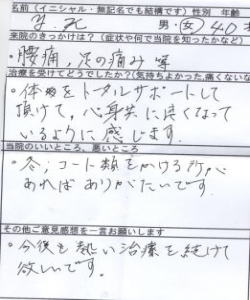 名前（イニシャル・無記名でも結構です） 性別 年齢
男・女 40才
来院のきっかけは？（症状や何で当院を知ったかなど）
・腰痛，足の痛み 等
治療を受けてどうでしたか？（気持ちよかった，痛くない
・体をトータルサポートして
頂けて，心身共に良くなって
いるように感じます．
当院のいいところ，悪いところ
・冬，コート類をかける所が
あればありがたいです．
その他ご意見感想を一言お願いします
・今後も熱い治療を続けて
欲しいです．